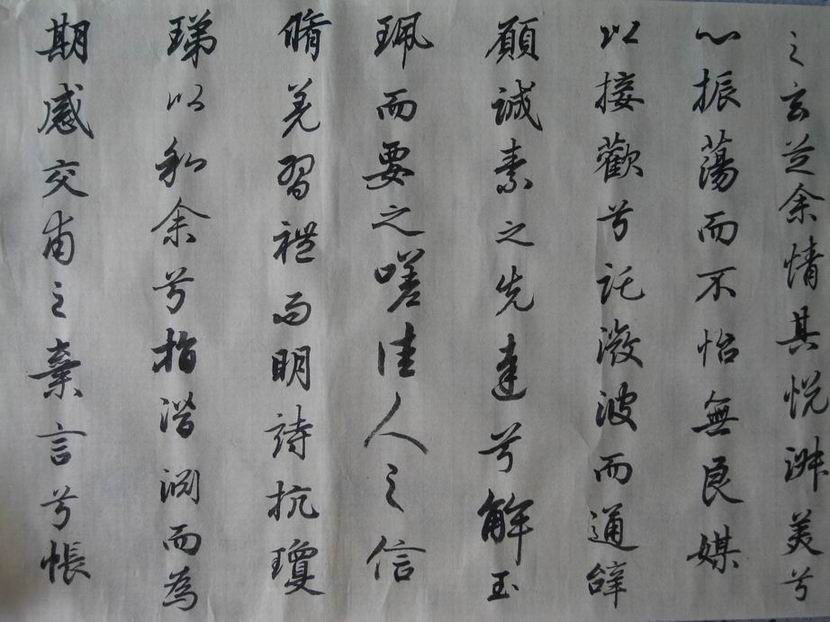 之玄芝余情其悦淑美兮
心振蕩而不怡無良媒
以接歡兮託微波而通辭
願誠素之先達兮解玉
珮而要之嗟佳人之信
脩羌習禮而明詩抗瓊
珶以和余兮指潛淵而為
期感交甫之棄言兮悵